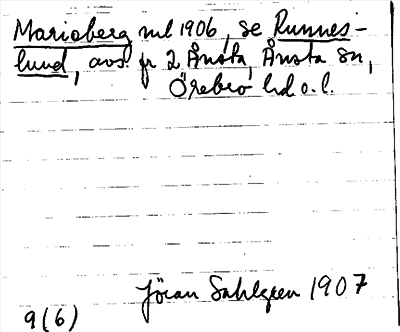 Marieberg ml 1906, se Runnes-
lund, avs fr 2 Ånsta, Ånsta sn,
Örebro hd o. l.
Jöran Sahlgren 1907
9(6)